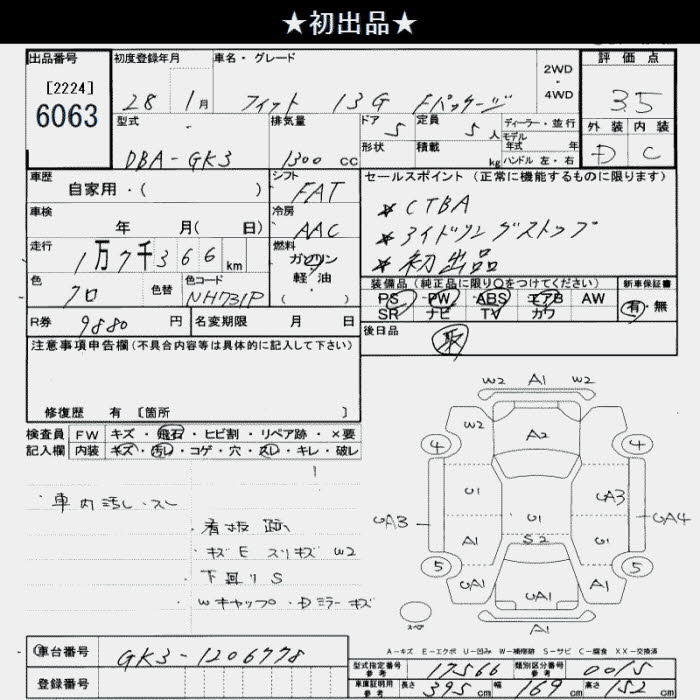 ★初出品★
出品番号 初度登録年月 車名・グレード 2WD・4WD 評価点
[2224]
6063 28 1月 フィット 13G Fパッケージ 3.5
型式 排気量 ドア 5 定員 5人 ディーラー・並行 外装 内装
DBA-GK3 1300cc 形状 積載 kg モデル年式 年 ハンドル 左・右 D C
車歴 シフト セールスポイント(正常に機能するものに限ります)
自家用・( ) FAT
車検 冷房 ＊CTBA
年 月( 日) AAC ＊アイドリングストップ
走行 燃料 ＊初出品
1万7千366km ガソリン 軽油 ・( )
色 色替 色コード 装備品(純正品に限り〇をつけてください) 新車保証書
クロ NH731P PS PW ABS エアB AW 有・無
SR ナビ TV カワ
R券 9880円 名変期限 月 日 後日品
取
注意事項申告欄(不具合内容等は具体的に記入して下さい)
修復歴 有 [箇所 ]
検査員 FW キズ・飛石・ヒビ割・リペア跡・×要
記入欄 内装 キズ・汚れ・コゲ・穴・スレ・キレ・破レ
・車内汚レ・スレ
・看板跡
・キズE スリキズW2
・下廻りS
・Wキャップ・Dミラーキズ
W2 A1 W2
W2
4 A2 4
U1 UA3
UA3 U1 UA4
A1 S2 U1
5 5
UA1 UA1 A1
スペア A1
A-キズ E-エクボ U-凹み W-補修跡 S-サビ C-腐食 XX-交換済
車台番号 GK3-1206778
登録番号
型式指定番号 参考 17566 類別区分番号 参考 0015
車庫証明用 参考 長さ 395cm 幅 169cm 高さ 152cm